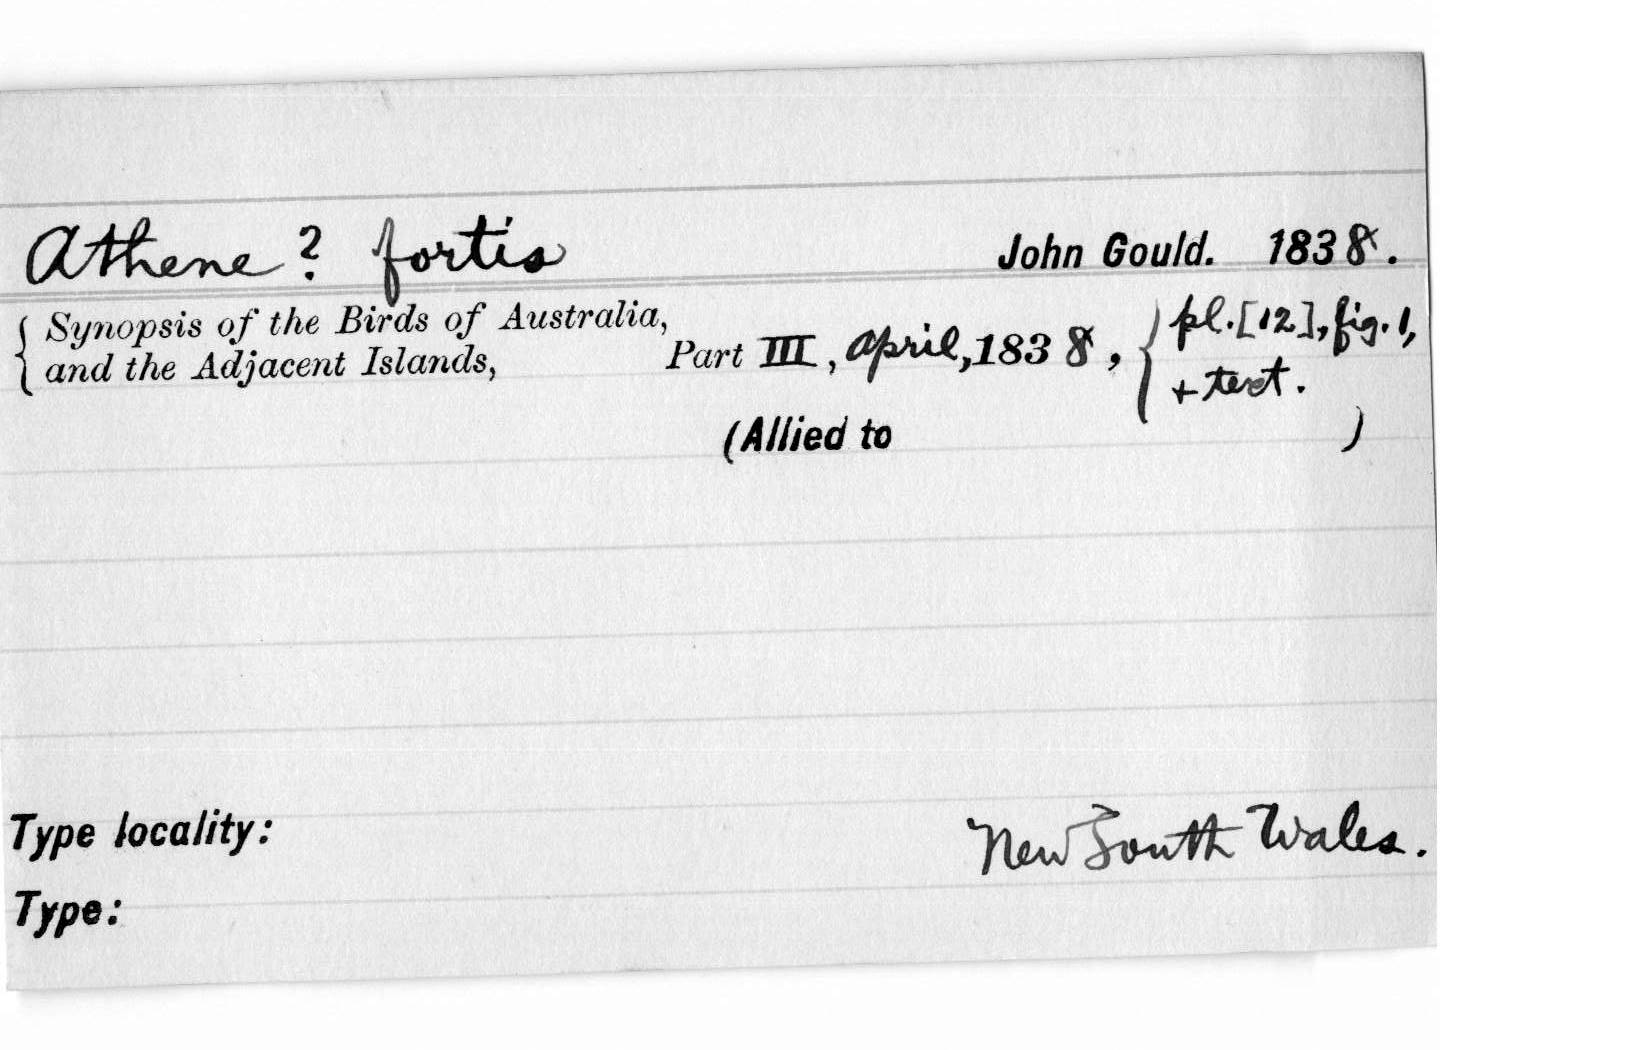 Athene ? fortis John Gould. 1838.
Synopsis of the Birds of Australia,
and the Adjacent Islands, Part III, April, 1838, pl. [12], fig. 1,
+ text.
(Allied to )
Type locality: New South Wales.
Type: